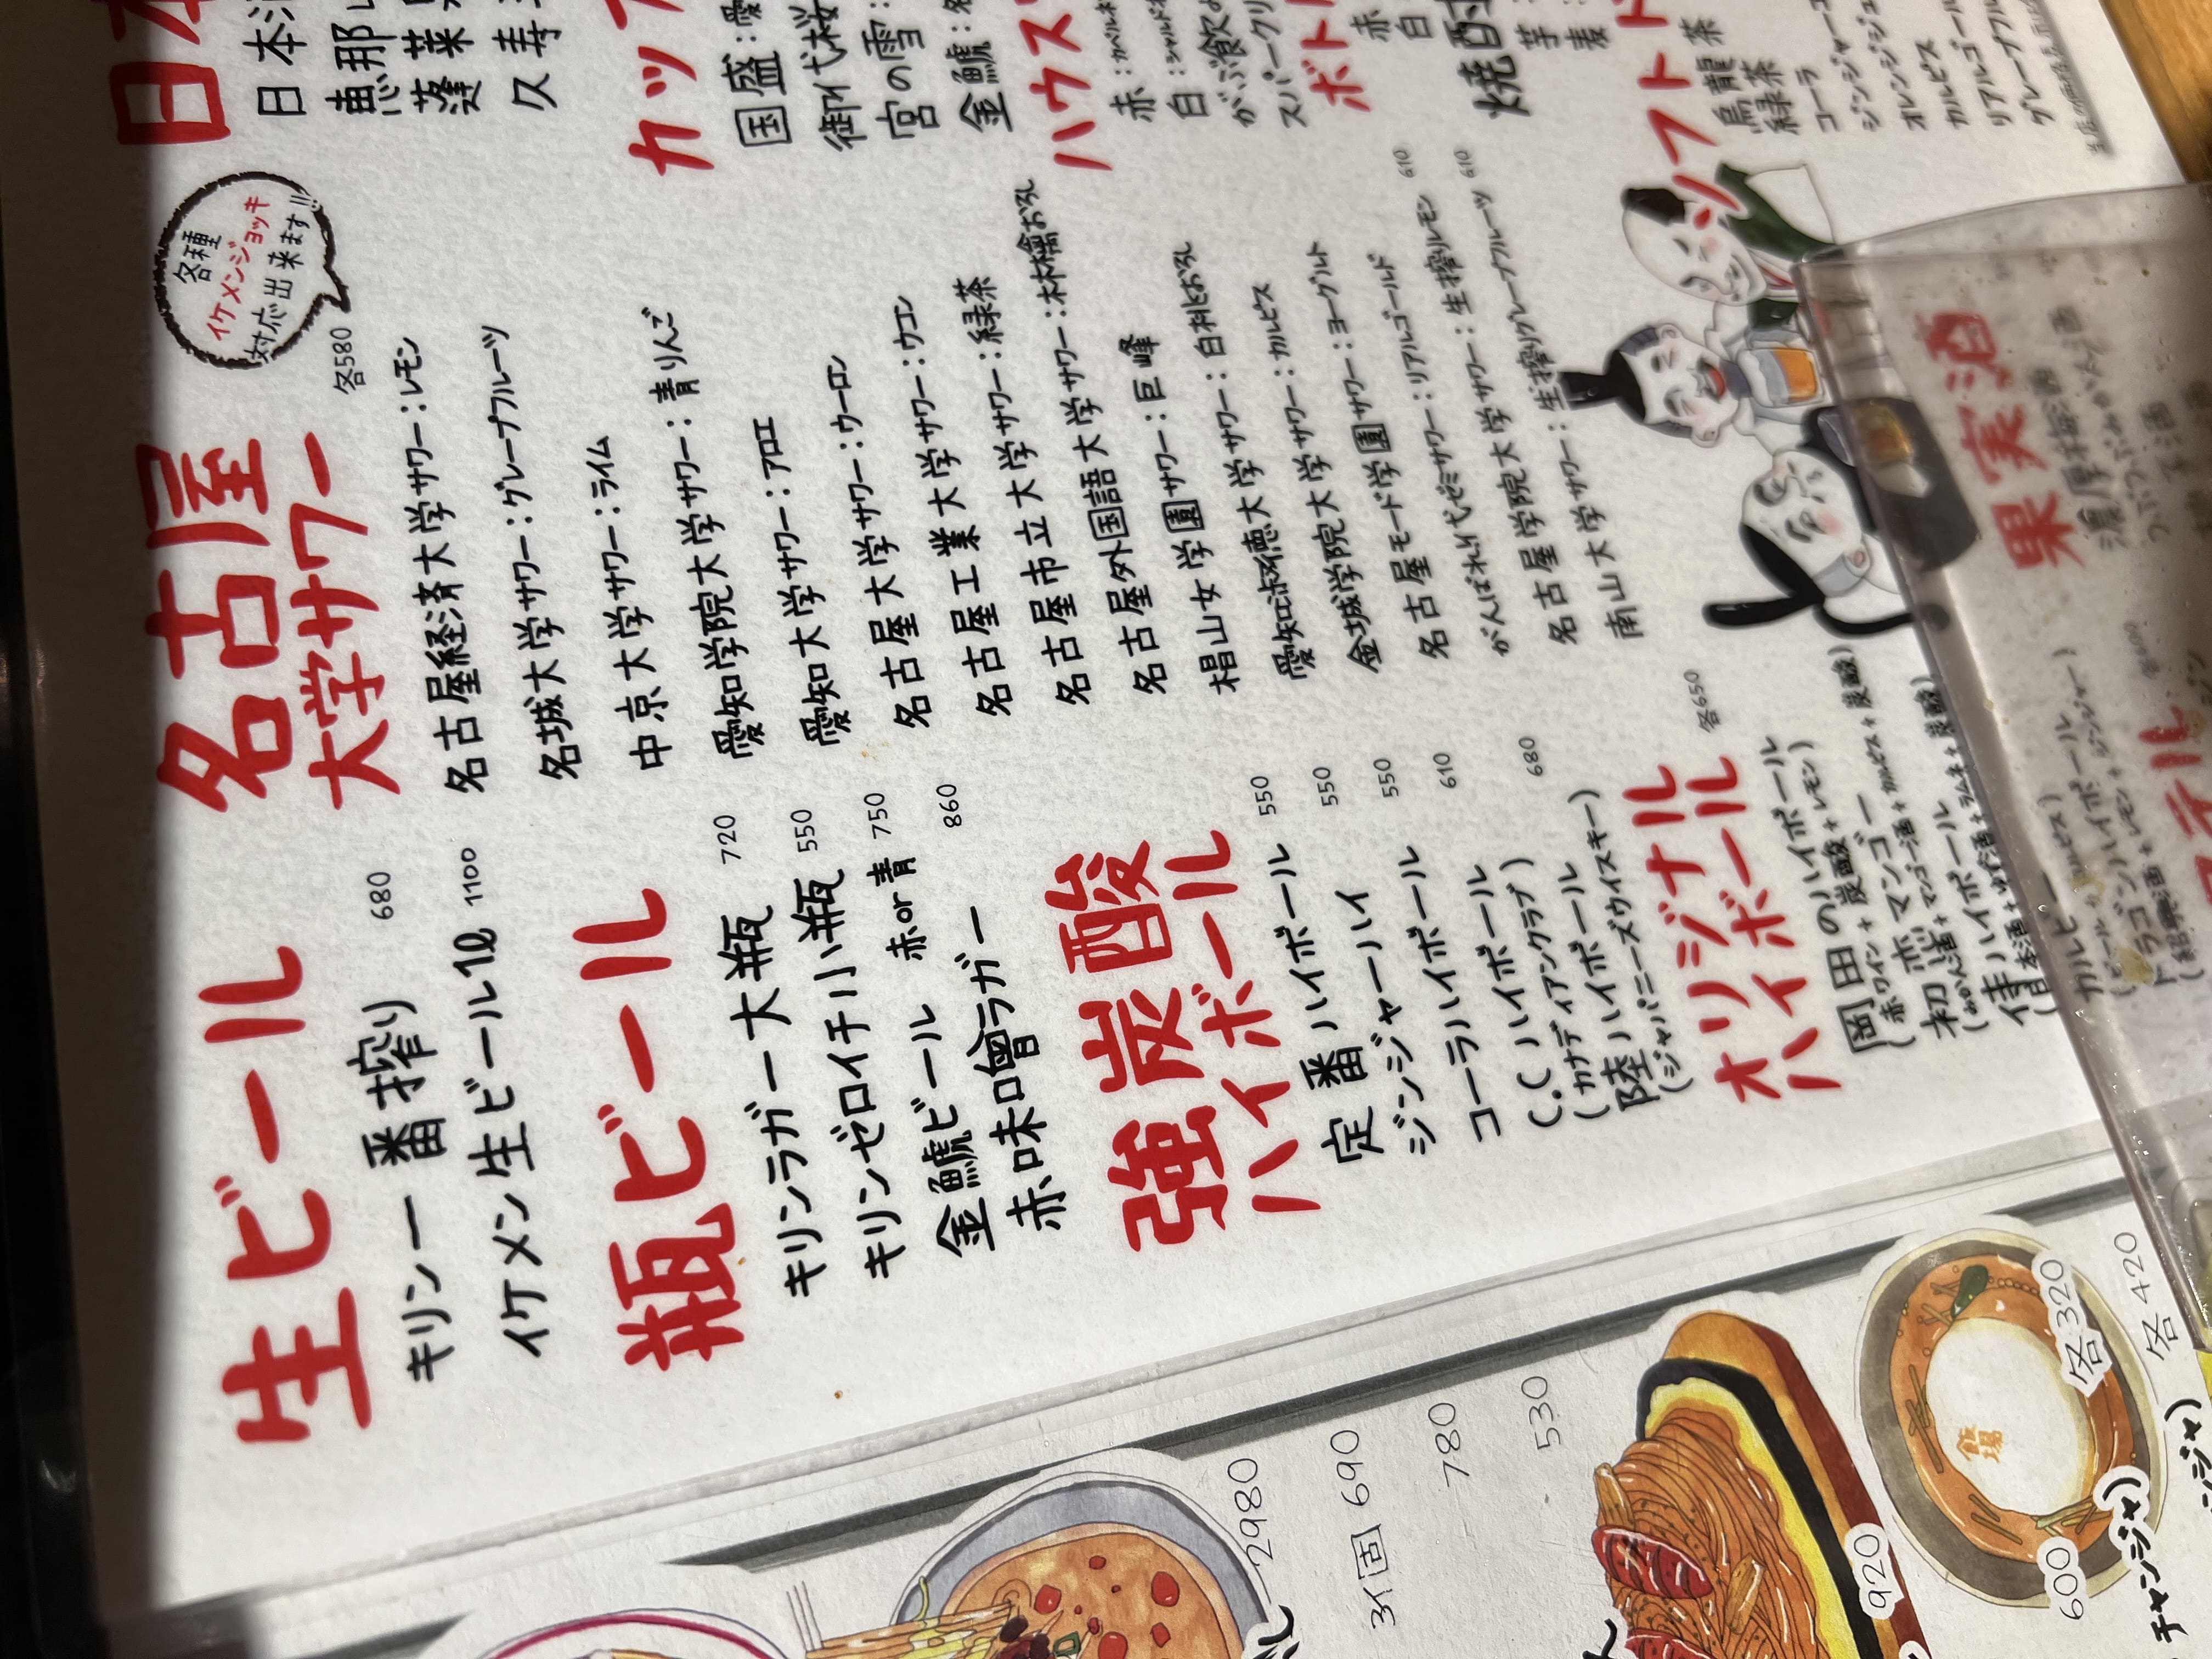 生ビール
キリン一番搾り 680
イケメン生ビール1ℓ 1100
瓶ビール
キリンラガー大瓶 720
キリンゼロイチ小瓶 550
金鯱ビール 赤or青 750
赤味噌ラガー 860
強炭酸
ハイボール
定番ハイボール 550
ジンジャーハイ 550
コーラハイボール 550
C.Cハイボール 610
(カナディアンクラブ)
陸ハイボール 680
(ジャパニーズウイスキー)
オリジナル
ハイボール 各650
岡田のハイボール
(赤ワイン+炭酸+レモン)
初恋マンゴー
(みかん酒+マンゴー酒+カルピス+炭酸)
侍ハイボール
(日本酒+ゆず酒+ラムネ+炭酸)
カルビー
(ビール+カルピス)
ドラゴンハイボール
(紹興酒+レモン+ジンジャー)
各600
名古屋
大学サワー
各580
各種
イケメンジョッキ
対応出来ます!!
名古屋経済大学サワー:レモン
名城大学サワー:グレープフルーツ
中京大学サワー:ライム
愛知学院大学サワー:青りんご
愛知大学サワー:アロエ
名古屋大学サワー:ウーロン
名古屋工業大学サワー:ウコン
名古屋市立大学サワー:緑茶
名古屋外国語大学サワー:林檎おろし
椙山女学園サワー:巨峰
愛知淑徳大学サワー:白桃おろし
金城学院大学サワー:カルピス
名古屋モード学園サワー:ヨーグルト
がんばれ代ゼミサワー:リアルゴールド
名古屋学院大学サワー:生搾りレモン 610
南山大学サワー:生搾りグレープフルーツ 610
果実酒
濃厚梅酒
つぶつぶみかん酒
日本
日本
恵那
蓬莱
久寿
カップ
国盛:愛
御代桜
宮の雪:
金鯱:名
ハウス
赤:カベルネ
白:シャルドネ
がぶ飲み
スパークリ
ボトル
赤
白
焼酎
芋
麦
ソフトド
烏龍茶
緑茶
コーラ
ジンジャーエ
オレンジジュ
カルピス
リアルゴール
グレープフル
2980
3個 690
780
530
920
飯場
600
各320
チャンジャ)
各420
ンジャ)